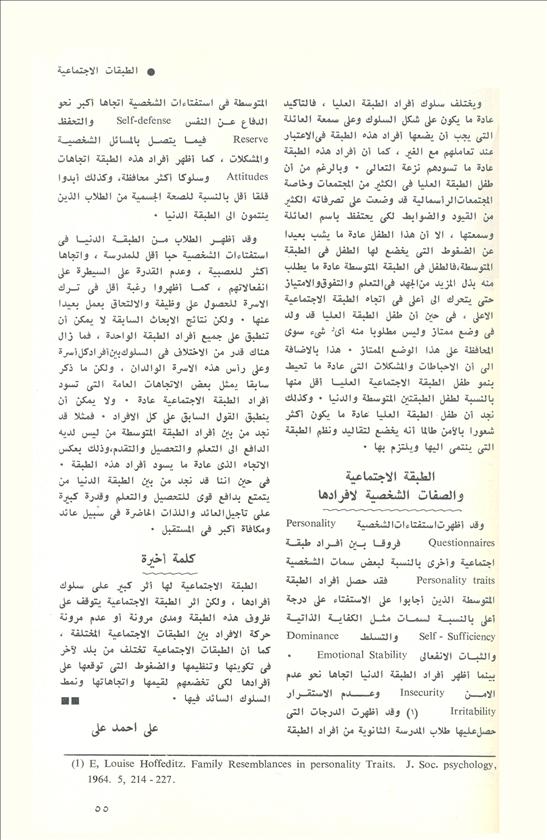 ● الطبقات الاجتماعية
ويختلف سلوك أفراد الطبقة العليا ، فالتأكيد
عادة ما يكون على شكل السلوك وعلى سمعة العائلة
التى يجب أن يضعها أفراد هذه الطبقة فى الاعتبار
عند تعاملهم مع الغير ، كما أن أفراد هذه الطبقة
عادة ما تسودهم نزعة التعالى • وبالرغم من أن
طفل الطبقة العليا فى الكثير من المجتمعات وخاصة
المجتمعات الرأسمالية قد وضعت على تصرفاته الكثير
من القيود والضوابط لكى يحتفظ باسم العائلة
وسمعتها ، الا أن هذا الطفل عادة ما يشب بعيدا
عن الضغوط التى يخضع لها الطفل فى الطبقة
المتوسطة، فالطفل فى الطبقة المتوسطة عادة ما يطلب
منه بذل المزيد من الجهد فى التعلم والتفوق والامتياز
حتى يتحرك الى أعلى فى اتجاه الطبقة الاجتماعية
الاعلى ، فى حين أن طفل الطبقة العليا قد ولد
فى وضع ممتاز وليس مطلوبا منه أى شىء سوى
المحافظة على هذا الوضع الممتاز • هذا بالاضافة
الى أن الاحباطات والمشكلات التى عادة ما تحيط
بنمو طفل الطبقة الاجتماعية العليا أقل منها
بالنسبة لطفل الطبقتين المتوسطة والدنيا • وكذلك
نجد أن طفل الطبقة العليا عادة ما يكون أكثر
شعورا بالأمن طالما أنه يخضع لتقاليد ونظم الطبقة
التى ينتمى اليها ويلتزم بها •
الطبقة الاجتماعية
والصفات الشخصية لافرادها
وقد أظهرت استفتاءات الشخصية Personality
Questionnaires فروقا بين أفراد طبقة
اجتماعية وأخرى بالنسبة لبعض سمات الشخصية
Personality traits فقد حصل أفراد الطبقة
المتوسطة الذين أجابوا على الاستفتاء على درجة
أعلى بالنسبة لسمات مثل الكفاية الذاتية
Self - Sufficiency والتسلط Dominance
والثبات الانفعالى Emotional Stability •
بينما أظهر أفراد الطبقة الدنيا اتجاها نحو عدم
الامن Insecurity وعدم الاستقرار
Irritability (١) وقد أظهرت الدرجات التى
حصل عليها طلاب المدرسة الثانوية من أفراد الطبقة
المتوسطة فى استفتاءات الشخصية اتجاها أكبر نحو
الدفاع عن النفس Self-defense والتحفظ
Reserve فيما يتصل بالمسائل الشخصية
والمشكلات ، كما أظهر أفراد هذه الطبقة اتجاهات
Attitudes وسلوكا أكثر محافظة، وكذلك أبدوا
قلقا أقل بالنسبة للصحة الجسمية من الطلاب الذين
ينتمون الى الطبقة الدنيا •
وقد أظهر الطلاب من الطبقة الدنيا فى
استفتاءات الشخصية حبا أقل للمدرسة ، واتجاها
أكثر للعصبية ، وعدم القدرة على السيطرة على
انفعالاتهم ، كما أظهروا رغبة أقل فى ترك
الاسرة للحصول على وظيفة والالتحاق بعمل بعيدا
عنها • ولكن نتائج الابحاث السابقة لا يمكن أن
تنطبق على جميع أفراد الطبقة الواحدة ، فما زال
هناك قدر من الاختلاف فى السلوك بين أفراد كل أسرة
وعلى رأس هذه الاسرة الوالدان ، ولكن ما ذكر
سابقا يمثل بعض الاتجاهات العامة التى تسود
أفراد الطبقة الاجتماعية عادة • ولا يمكن أن
ينطبق القول السابق على كل الافراد • فمثلا قد
نجد من بين أفراد الطبقة المتوسطة من ليس لديه
الدافع الى التعلم والتحصيل والتقدم، وذلك بعكس
الاتجاه الذى عادة ما يسود أفراد هذه الطبقة •
فى حين اننا قد نجد من بين الطبقة الدنيا من
يتمتع بدافع قوى للتحصيل والتعلم وقدرة كبيرة
على تأجيل العائد واللذات الحاضرة فى سبيل عائد
ومكافأة أكبر فى المستقبل •
كلمة أخيرة
الطبقة الاجتماعية لها أثر كبير على سلوك
أفرادها ، ولكن اثر الطبقة الاجتماعية يتوقف على
ظروف هذه الطبقة ومدى مرونة أو عدم مرونة
حركة الافراد بين الطبقات الاجتماعية المختلفة ،
كما أن الطبقات الاجتماعية تختلف من بلد لآخر
فى تكوينها وتنظيمها والضغوط التى توقعها على
أفرادها لكى تخضعهم لقيمها واتجاهاتها ونمط
السلوك السائد فيها • ■■
على احمد على
(1) E, Louise Hoffeditz. Family Resemblances in personality Traits. J. Soc. psychology,
1964. 5, 214 - 227.
٥٥